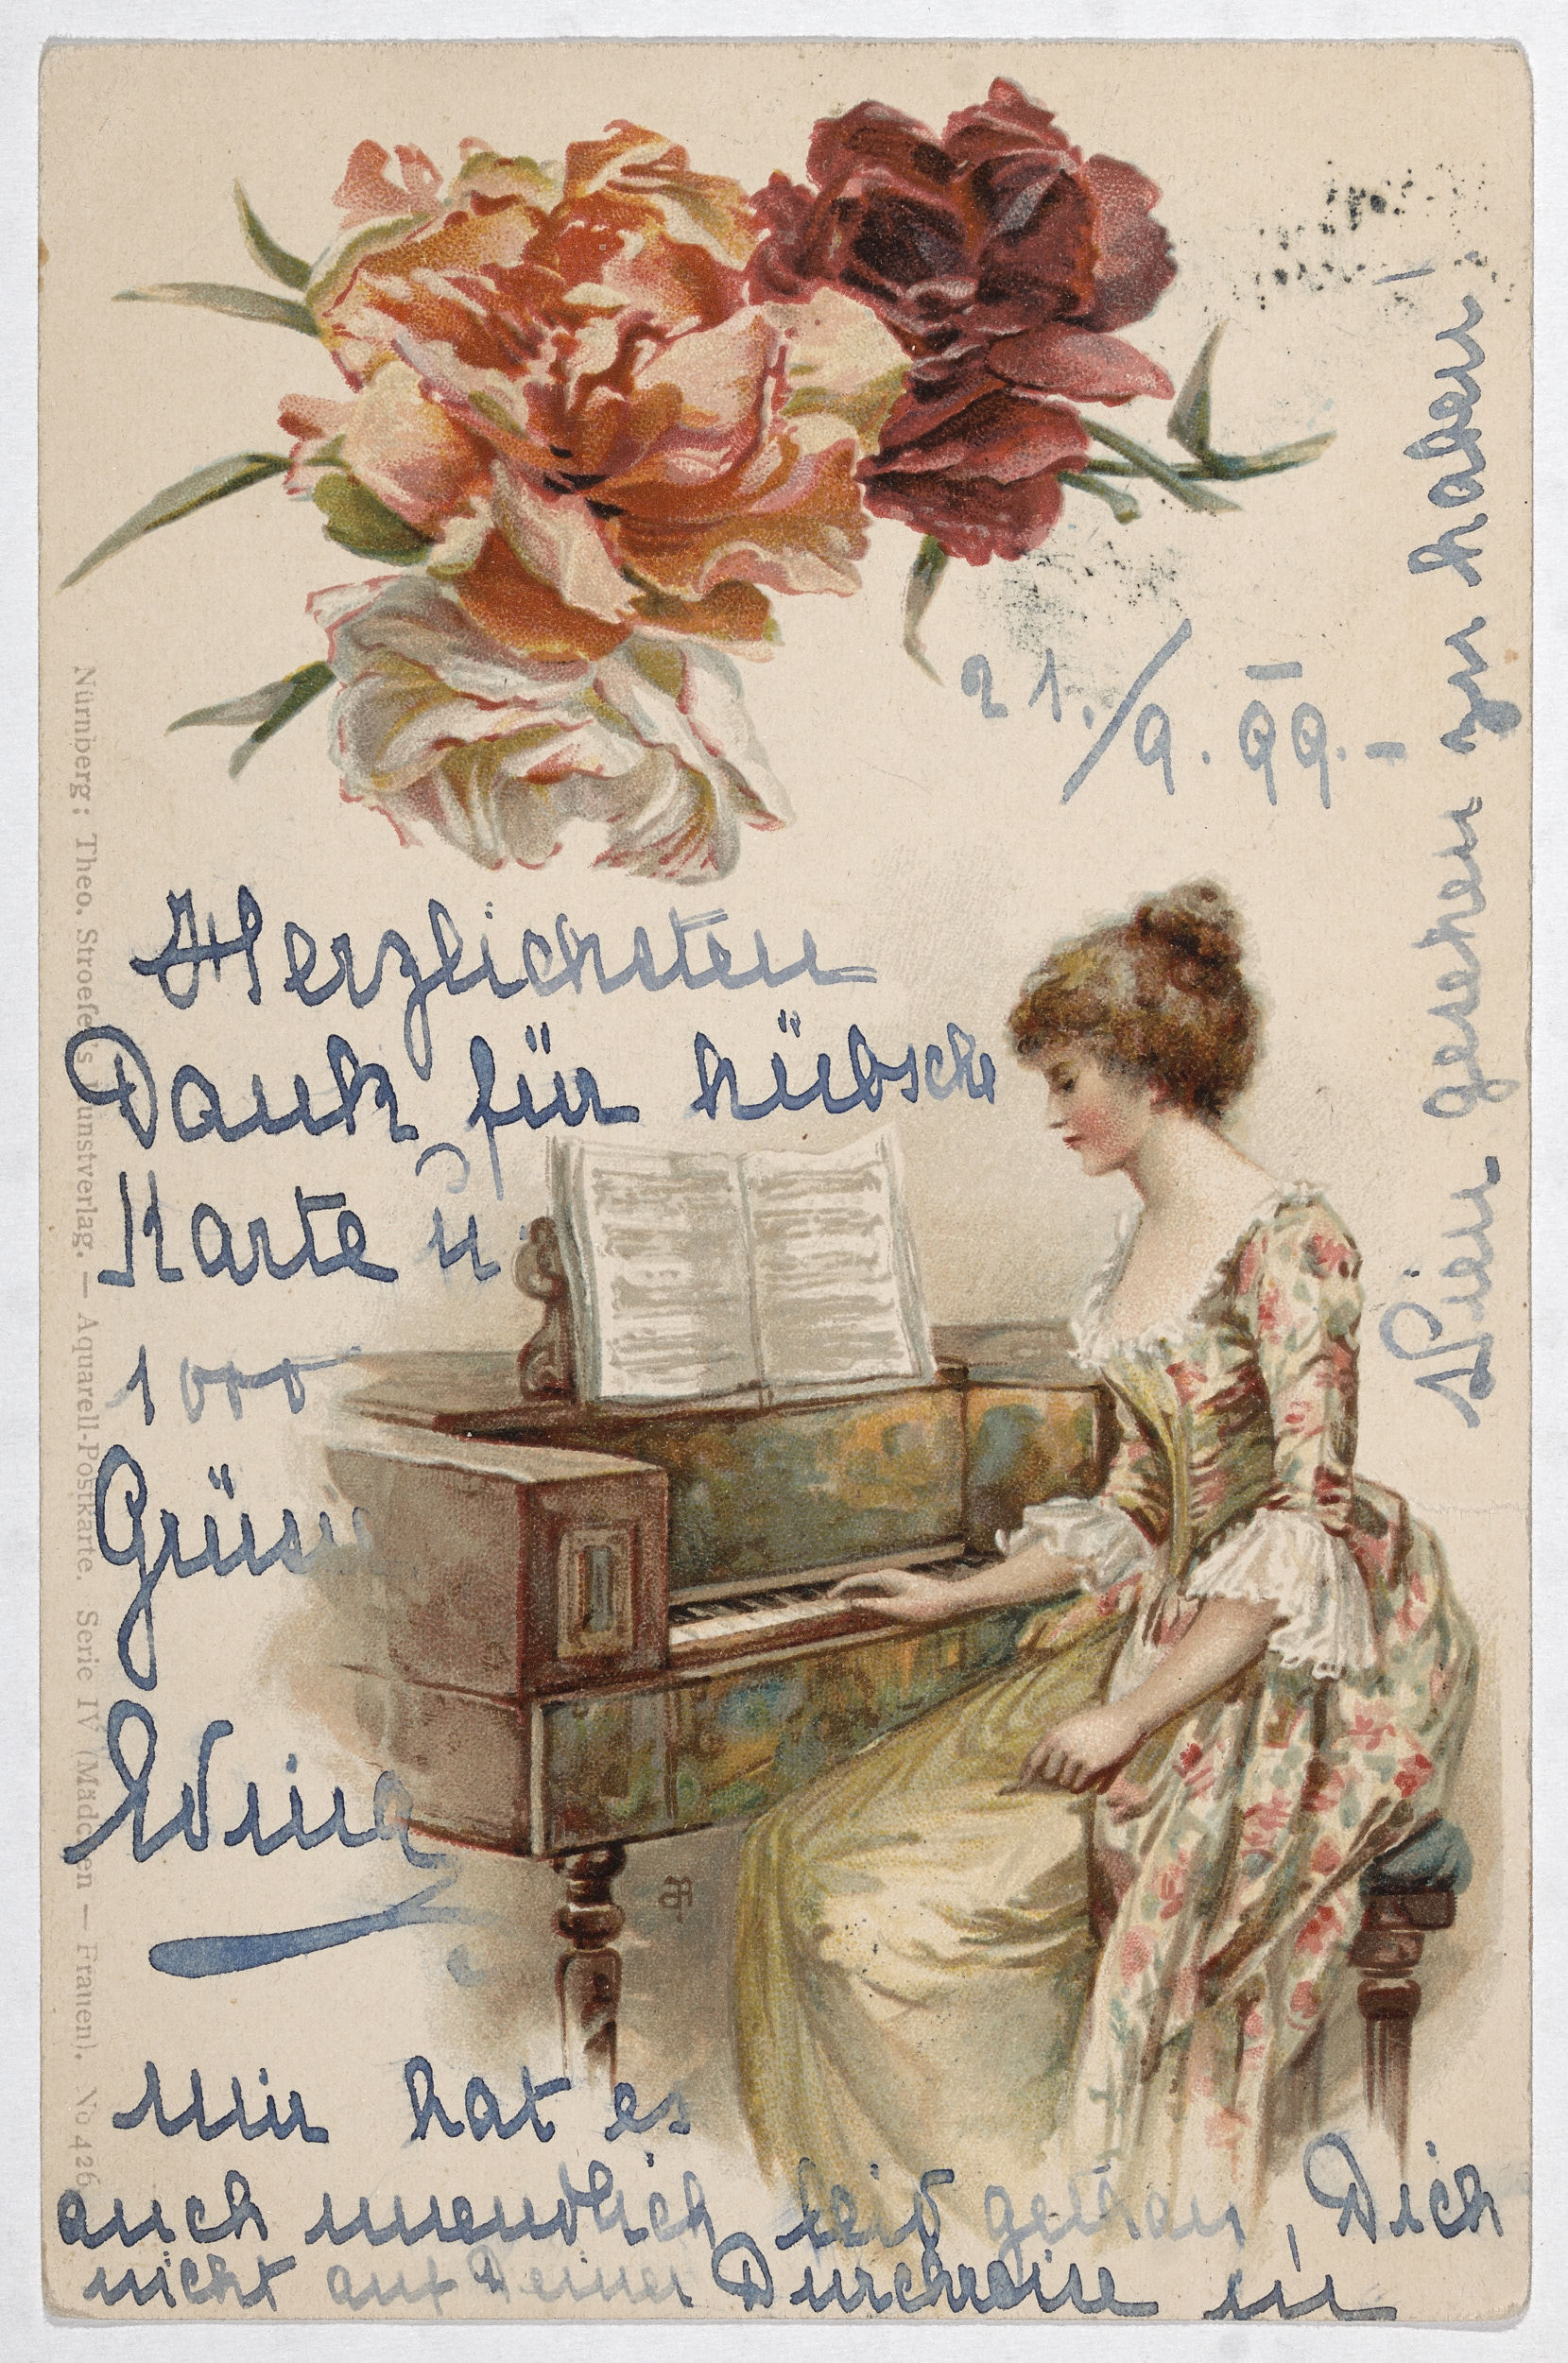 21./9. 99. -
Herzlichsten
Dank für hübsche
Karte u.
1000
Grüsse
Edina
Mir hat es
auch unendlich leid gethan, Dich
nicht auf Deiner Durchreise in
Wien gesehen zu haben!
Nürnberg: Theo. Stroefer's Kunstverlag. — Aquarell-Postkarte. Serie IV (Mädchen — Frauen). No 426